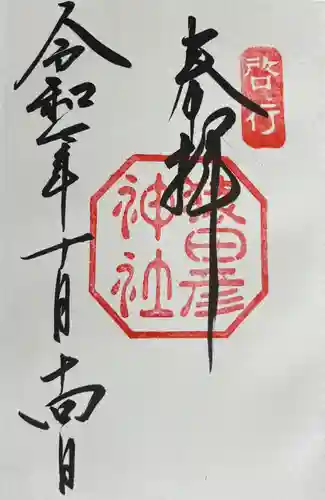 啓行
奉拝
猿田彦
神社
令和年十月日